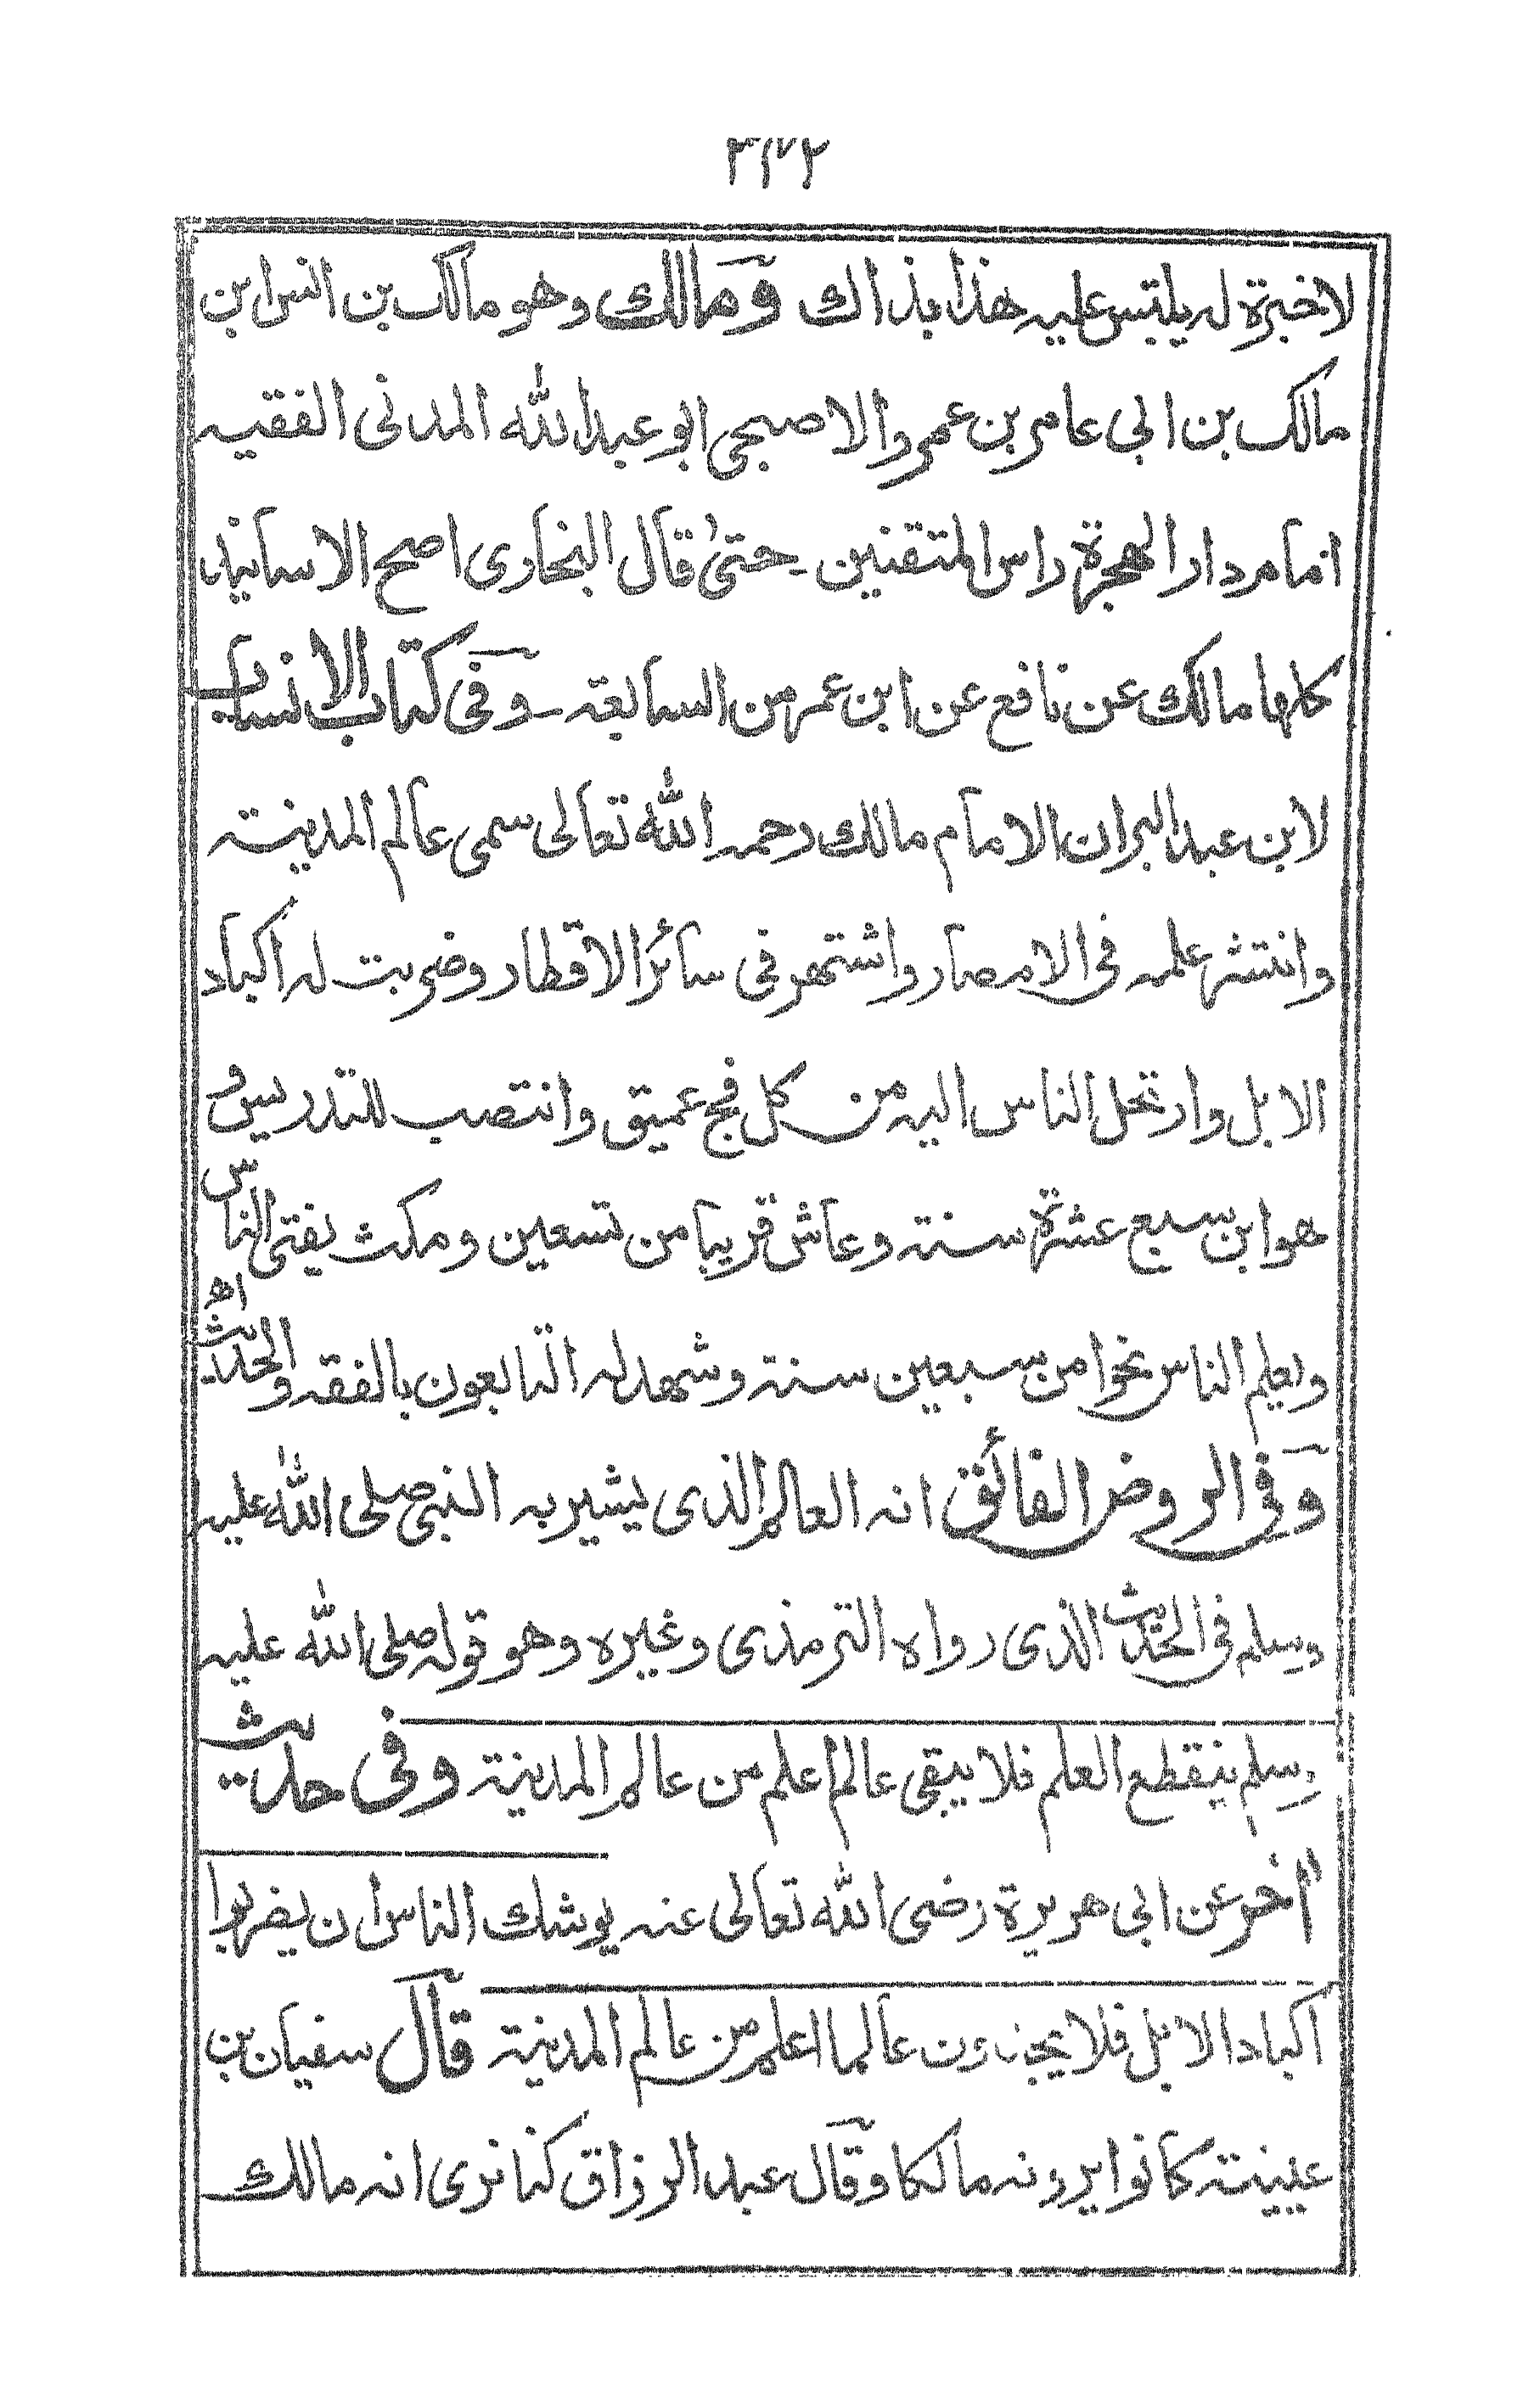 لاخبرة له يلتبس عليه هذا بذاك ومالك وهو مالك بن انس ابن
مالك بن ابي عامر بن عمرو الاصبحى ابو عبد الله المدنى الفقيه
امام دار الهجرة راس المتقنين۔ حتىٰ قال البخارى اصح الاسانيد
كلها مالك عن نافع عن ابن عمر من السابعة۔ وفى كتاب الانساب
لابن عبد البر ان الامام مالك رحمه الله تعالى سمى عالم المدينة
وانتشر علمه فى الامصار واشتهر فى سائر الاقطار وضربت له اكباد
الابل وارتحل الناس اليه من كل فج عميق وانتصب للتدريس و
هو ابن سبع عشرة سنة وعاش قريبا من تسعين ومكث يفتى الناس
ويعلم الناس نحوا من سبعين سنة وشهد له التابعون بالفقه والحديث اھ
وفى الروض الفائق انه العالم الذى يشير به النبى صلى الله عليه
وسلم فى الحديث الذى رواه الترمذى وغيره وهو قوله صلى الله عليه
وسلم ينقطع العلم فلا يبقى عالم اعلم من عالم المدينة وفى حديث
اٰخر عن ابى هريرة رضى الله تعالى عنه يوشك الناس ان يضربوا
اكباد الابل فلا يجدون عالما اعلم من عالم المدينة قال سفيان بن
عيينة كانوا يرونه مالكا وقال عبد الرزاق كنا نرى انه مالك